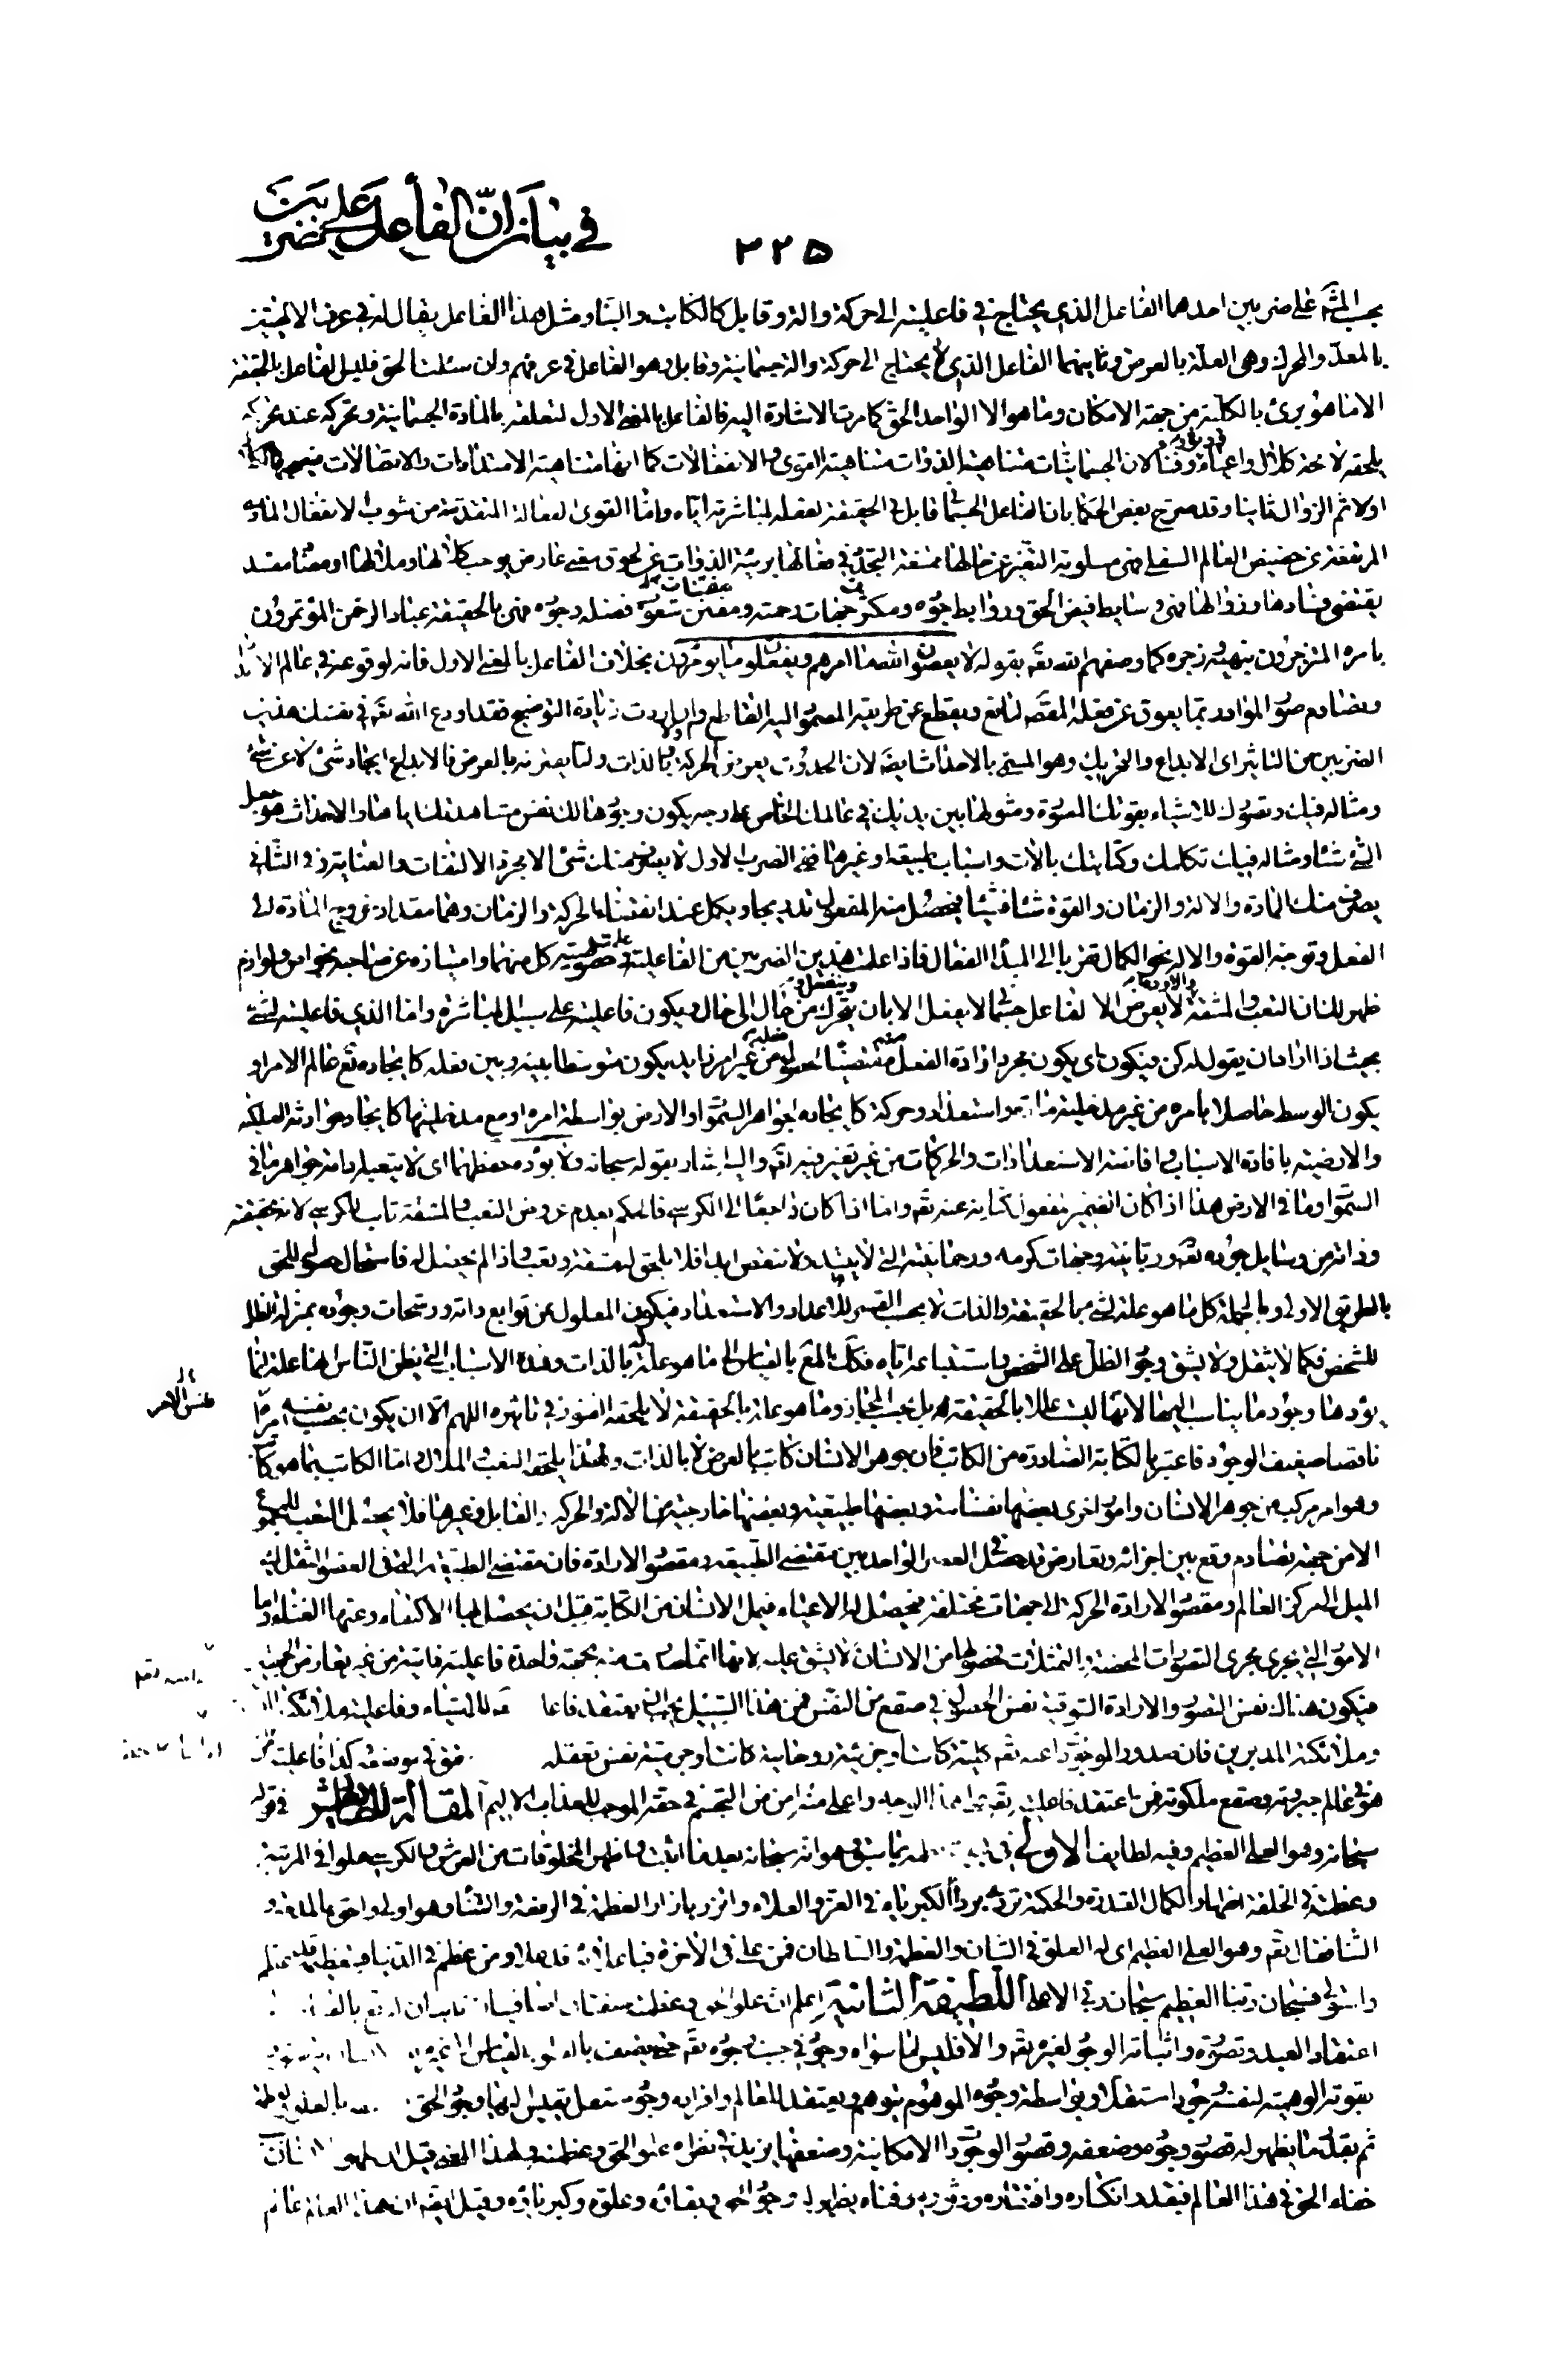 في بيان ان الفاعل على ضربين
٣٢٥
على ضربين احدهما الفاعل الذي يحتاج في فاعليته الى حركة والة وقابل كالكاتب والبناء ومثل هذا الفاعل يقال له في عرف الالهيين
بالمعد والمحرك وهي العلة بالعرض وثانيهما الفاعل الذي لا يحتاج الى حركة والة جسمانية وقابل وهو الفاعل في عرفهم ولن سئلت الحق فليس الفاعل بالحقيقة
الا ما هو برئ بالكلية من جهة الامكان وما هو الا الواحد الحق كما مرت الاشارة اليه فالفاعل بالمعنى الاول لتعلقه بالمادة الجسمانية وتحركه عند تحريكه
يلحقه لا محة كلال واعياء وفناء لان الجسمانيات متناهية الذوات متناهية القوى والانفعالات كما انها متناهية الامتدادات والاتصالات
اولا ثم الزوال ثانيا وقد صرح بعض الحكما بان الفاعل الجسماني قابل في الحقيقة لفعله لمباشرته اياه واما القوى الفعالة المتقدسة من شوب الانفعال المادي
المرتفعة عن حضيض العالم السفلي فهي مسلوبة التغير عن حالها ممتنعة التجدد في فعالها بريئة الذوات عن لحوق معنى عارض يوجب كلالها وملالها او معنى مفسد
يقتضي فسادها وزوالها فهي وسايط فيض الحق وروابط جوده ومكرر جهات رحمته ومفنن شعوب فضله وجوده فهي بالحقيقة عباد الرحمن المؤتمرون
بامره المنزجرون بنهيه وزجره كما وصفهم الله تعه بقوله لا يعصون الله ما امرهم ويفعلون ما يؤمرون بخلاف الفاعل بالمعنى الاول فانه لوقوعه في عالم
وتصادم صور المواد ربما يعوق عن فعله المقصود لمانع وينقطع عن طريقه المصمود اليه لقاطع وان اردت زيادة التوضيح فقد اودع الله تعه في نفسك هذين
الضربين من التاثير اى الابداع والتحريك وهو المسمى بالاحداث ايضه لان الحدوث يعرض الحركة بالذات ولما يقترن به بالعرض فالابداع ايجاد شئ لا عن شئ
ومثاله فيك وتصورك للاشياء بقوتك المصورة ومثولها بين يديك في عالمك الخاص على وجه يكون وجودها لك نفس مشاهدتك اياها والاحداث هو جعل
الشئ شئا ومثاله فيك تكلمك وكتابتك بالات واسباب طبيعية او غيرها ففي الضرب الاول لا يصرف منك شئ الا مجرد الالتفات والعناية وفي الثاني
يصرف منك المادة والالة والزمان والقوة شئا فشئا فيحصل منه المفعول تدريجا ويكمل عند انقضاء الحركة والزمان وهما مقدار خروج المادة الى
الفعل وتوجه القوة والالة نحو الكمال تقربا الى المبدا الفعال فاذا علمت هذين الضربين من الفاعلية على خصوصية كل منهما وامتيازه عن صاحبه بخواص ولوازم
ظهر لك ان التعب والمشقة لا يعرض الا لفاعل جسماني لا يفعل الا بان يتحرك وينفعل من حال الى حال ويكون فاعليته على سبيل المباشرة واما الذي فاعليته لشئ
بحيث اذا اراد ان يقول له كن فيكون اى يكون مجرد ارادة الفعل منه مقتضيا لحصول من غير امر زايد يكون متوسطا بينه وبين فعله كايجاده تعه عالم الامر او
يكون الوسط حاصلا بامره من غير مدخلية مادة واستعداد وحركة كايجاده جواهر السموات والارض بواسطة امره او مع مدخليتها كايجاد حوادثه الفلكية
والارضية بافادة الاسباب وافاضة الاستعدادات والحركات من غير تغير فيه تعه واليه اشار بقوله سبحانه ولا يؤده حفظهما اى لا يتعبه اقامة جواهر ما في
السموات وما في الارض هذا اذا كان الضمير المفعول كناية عنه تعه واما اذا كان راجعا الى الكرسي فالحكم بعدم عروض التعب والمشقة ثابت للكرسي لانه بحقيقته
وذاته من وسايل جوده تعه وربانيته وجهات كرمه ورحمانيته التي لا يبيد ولا ينقص ابدا فلا يلحقه مشقة وتعب فاذا لم يحصل له فاستحال حصوله للحق
بالطريق الاولى وبالجملة كل ما هو علة لشئ بالحقيقة والذات لا بحسب القسر والاعداد والاستعداد فيكون المعلول من توابع ذاته ورشحات وجوده بمنزلة الظل
للشخص فكما لا يثقل ولا يشق وجود الظل على الشخص واستتباعه اياه فكك المعه بالقياس الى ما هو علة له بالذات وهذه الاسباب التي يظن الناس انها علة لما
يؤدها وجود ما يناسب اليها لانها ليست عللا بالحقيقة بل بحسب المجاز وما هو علة بالحقيقة لا يلحقه الفتور في تاثيره اللهم الا ان يكون بحسب نفسه امرا
ناقصا ضعيف الوجود فاعتبر بالكتابة الصادرة من الكاتب فان جوهر الانسان كاتب بالعرض لا بالذات ولهذا يلحقه التعب والملال اما الكاتب بما هو كاتب
وهو امر مركب من جوهر الانسان وامور اخرى بعضها نفسانية وبعضها طبيعية وبعضها خارجية من الالة والحركة والقابل وغيرها فلا يحصل التعب للمجموع
الا من جهة تصادم وقع بين اجزائه وتعارض بين مقتضى الطبيعة ومقصود الارادة فان مقتضى الطبيعة في العضو الثقل
الميل الى مركز العالم ومقصود الارادة الحركة الى جهات مختلفة فيحصل له الاعياء فيمل الانسان من الكتابة قبل ان يحصل لها الاكتفاء وعنها الغناء واما
الامور التي يجري مجرى التصورات المحضة والتمثلات فحضورها من الانسان لا يشق عليه لانها انما حصلت منه بجهة واحدة فاعلية ذاتية من غير تعارض
فيكون هناك نفس التصور والارادة الشوقية نفس الحصول في صقع من النفس فمن هذا السبيل يجب ان يعتقد للاشياء وفاعلية ملائكة
وملائكة المدبرين فان صدور الموجودات عنه تعه كلية كانت او جزئية روحانية كانت او جرمية نفس تعقله
في عالم جبروته وصقع ملكوته فمن اعتقد فاعليته تعه على هذا الوجه من التجسم في حقه الموجب للعذاب الاليم المقالة في قوله
سبحانه وهو العلي العظيم وفيه لطايف الاولى في هو انه سبحانه بعد ما اثبت واظهر المخلوقات من العرش والكرسي علوا في المرتبة
وعظمة في الخلقة اظهارا لكمال القدرة والحكمة تردى برداء الكبرياء في العز والعلاء واتزر بازار العظمة في الرفعة والثناء وهو اولى واحق بالمدحة و
الثناء فقال تعه وهو العلي العظيم اى له العلو في الشان والعظمة والسلطان فمن على في الاخرة فباعلائه قد على ومن عظم في الدنيا فبتعظيمه قد عظم
فسبحان ربنا العظيم سبحان ربي الاعلى اللطيفة الثانية اعلم ان علو وعظمته صفتان
اعتقاد العبد وتصوره واثباته الوجود لغيره تعه والا فليس لما سواه وجود في جنب وجوده تعه حتى يتصف
بقوته الوهمية لنفسه وجودا مستقلا وبواسطة وجوده الموهوم يتوهم ويعتقد للعالم وافراده وجود مستقل بقياس وجود الحق
ثم بقدر ما يظهر له قصور وجوده وضعفه وقصور الوجودات الامكانية وضعفها يزيد في نظره علو الحق وعظمته ولهذا المعنى قيل
خفاء الحق في هذا العالم فبقدر انكساره وافتقاره ودثوره وفناه يظهر له وجود الحق وبقائه وعلوه وكبريائه وقيل ايضه ان هذا العالم عالم